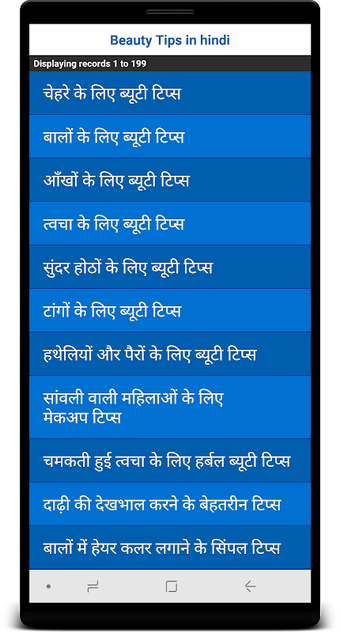 Beauty Tips in hindi
Displaying records 1 to 199
चेहरे के लिए ब्यूटी टिप्स
बालों के लिए ब्यूटी टिप्स
आँखों के लिए ब्यूटी टिप्स
त्वचा के लिए ब्यूटी टिप्स
सुंदर होठों के लिए ब्यूटी टिप्स
टांगों के लिए ब्यूटी टिप्स
हथेलियों और पैरों के लिए ब्यूटी टिप्स
सांवली वाली महिलाओं के लिए
मेकअप टिप्स
चमकती हुई त्वचा के लिए हर्बल ब्यूटी टिप्स
दाढ़ी की देखभाल करने के बेहतरीन टिप्स
बालों में हेयर कलर लगाने के सिंपल टिप्स